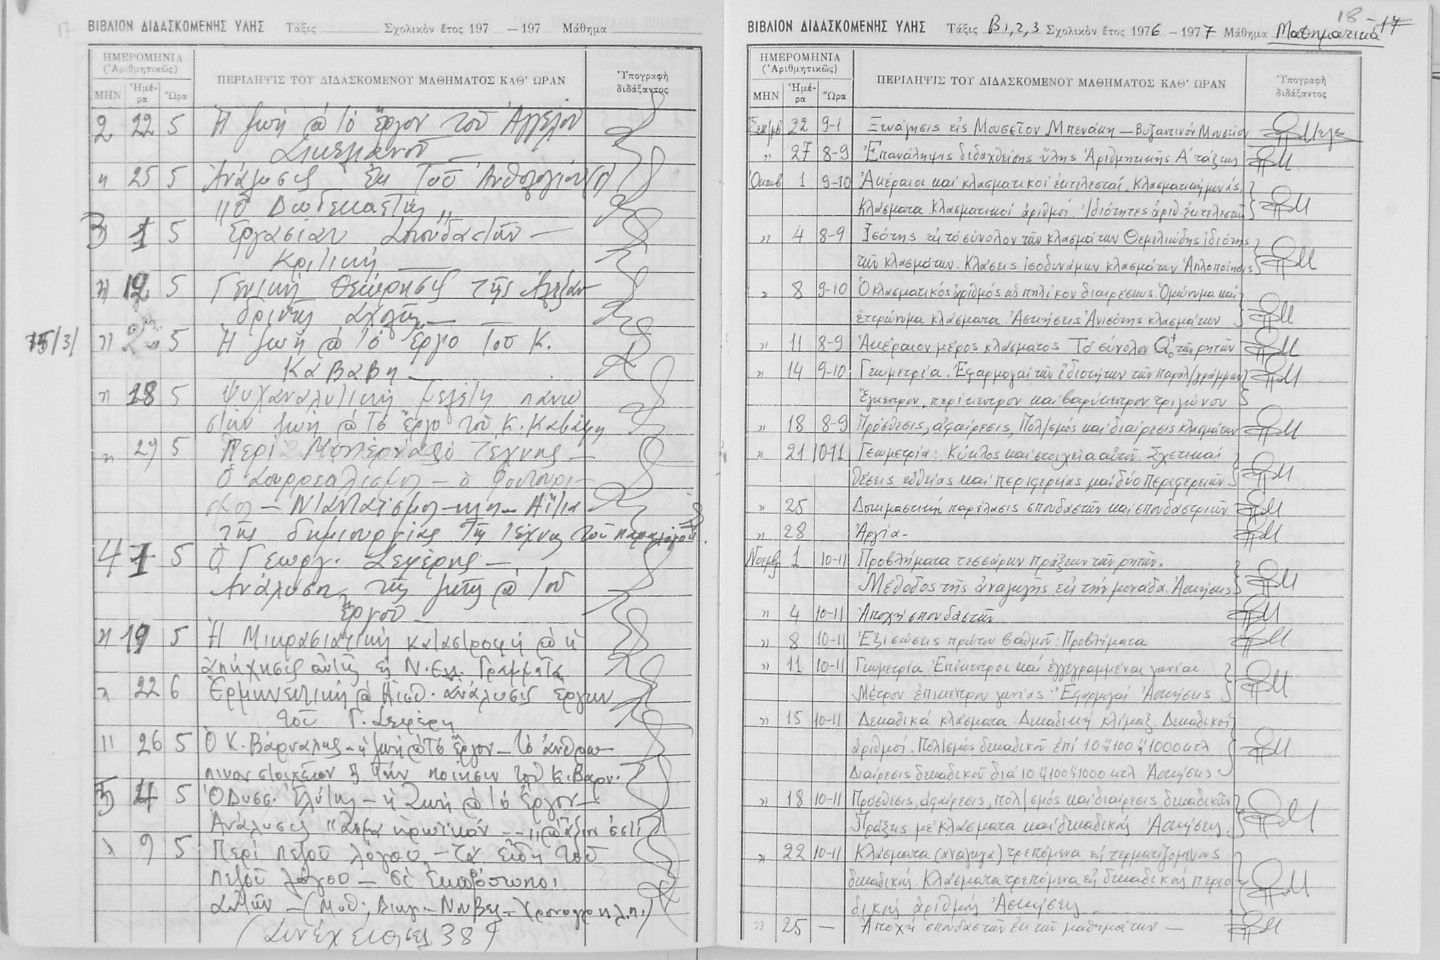 17 ΒΙΒΛΙΟΝ ΔΙΔΑΣΚΟΜΕΝΗΣ ΥΛΗΣ Τάξις Σχολικὸν ἔτος 197 —197 Μάθημα
ΗΜΕΡΟΜΗΝΙΑ
(Ἀριθμητικῶς)
ΜΗΝ Ἡμέρα Ὥρα
ΠΕΡΙΛΗΨΙΣ ΤΟΥ ΔΙΔΑΣΚΟΜΕΝΟΥ ΜΑΘΗΜΑΤΟΣ ΚΑΘ' ΩΡΑΝ
Ὑπογραφὴ
διδάξαντος
2 22 5 Ἡ ζωή @ τό ἔργον τοῦ Ἀγγέλου
Σικελιανοῦ —
" 25 5 Ἀνάλυσις ἐκ τοῦ Ἀνθολογίου
"τοῦ Δωδεκαετῆς"
3 1 5 Ἐργασίαι Σπουδαστῶν —
Κριτική —
" 12 5 Γενική θεώρησις τῆς Ἀλεξαν
δρινῆς Σχολῆς —
15/3/ " 5 Ἡ ζωή @ τό ἔργο τοῦ Κ.
Καβάβη —
" 18 5 Ψυχαναλυτική μελέτη πάνω
στήν ζωή @ τό ἔργο τοῦ Κ. Καβάφη
" 29 5 Περί Μοντέρνας τέχνης —
Ὁ Σουρρεαλισμός — ὁ Φουτουρι-
σμός — Ντανταϊσμός — Αἴτια
τῆς δημιουργίας τῆς τέχνης τοῦ παραλόγου.
4 1 5 Ὁ Γεώργ. Σεφέρης —
Ἀνάλυση τῆς ζωῆς @ τοῦ
ἔργου —
" 19 5 Ἡ Μικρασιατική καταστροφή @ ἡ
ἀπήχησις αὐτῆς εἰς Ν. Ἑλ. Γράμματα
" 22 6 Ἑρμηνευτική @ Αἰσθ. ἀνάλυσις ἔργων
τοῦ Γ. Σεφέρη
" 26 5 Ὁ Κ. Βάρναλης — ἡ ζωή @ τό ἔργον — τό ἀνθρώ-
πινον στοιχεῖον εἰς τήν ποίησιν τοῦ Κ. Βαρν.
5 4 5 Ὁ Ὀδυσ. Ἐλύτης — ἡ ζωή @ τό ἔργον —
Ἀνάλυσις "ᾆσμα ἡρωϊκόν — "ἄξιον ἐστί
" 9 5 Περί πεζοῦ λόγου — τά εἴδη τοῦ
πεζοῦ λόγου — οἱ ἐκπρόσωποι
αὐτῶν — (Μυθ., Διηγ. — Νουβελ. — Χρονογρ. κ.λ.π.)
(Συνέχεια σελ. 38)
18 – 17
ΒΙΒΛΙΟΝ ΔΙΔΑΣΚΟΜΕΝΗΣ ΥΛΗΣ Τάξις Β1,2,3 Σχολικὸν ἔτος 1976 —1977 Μάθημα Μαθηματικά
ΗΜΕΡΟΜΗΝΙΑ
(Ἀριθμητικῶς)
ΜΗΝ Ἡμέρα Ὥρα
ΠΕΡΙΛΗΨΙΣ ΤΟΥ ΔΙΔΑΣΚΟΜΕΝΟΥ ΜΑΘΗΜΑΤΟΣ ΚΑΘ' ΩΡΑΝ
Ὑπογραφὴ
διδάξαντος
Σεπτμβ 22 9-1 Ξενάγησις εἰς Μουσεῖον Μπενάκη — Βυζαντινόν Μουσεῖον
" 27 8-9 Ἐπανάληψις διδαχθείσης ὕλης Ἀριθμητικῆς Α΄ τάξεως
Ὀκτωβ 1 9-10 Ἀκέραιοι καί κλασματικοί ἐκτελεσταί. Κλασματική μονάς.
Κλάσματα Κλασματικοί ἀριθμοί. Ἰδιότητες ἀριθ ἐκτελεστῶν
" 4 8-9 Ἰσότης εἰς τό σύνολον τῶν κλασμάτων Θεμελιώδης ἰδιότης
τῶν κλασμάτων. Κλάσεις ἰσοδυνάμων κλασμάτων Ἁπλοποίησις
" 8 9-10 Ὁ κλασματικός ἀριθμός ὡς πηλίκον διαιρέσεως. Ὁμώνυμα καί
ἑτερώνυμα κλάσματα. Ἀσκήσεις Ἀνισότης κλασμάτων
" 11 8-9 Ἀκέραιον μέρος κλάσματος Τό σύνολον Q₀⁺ τῶν ρητῶν
" 14 9-10 Γεωμετρία. Ἐφαρμογαί τῶν ἰδιοτήτων τῶν παραλ/γράμμων
Ἔγκεντρον, περίκεντρον καί βαρύκεντρον τριγώνου
" 18 8-9 Πρόσθεσις, ἀφαίρεσις, Πολ/σμός καί διαίρεσις κλασμάτων
" 21 10-11 Γεωμετρία: Κύκλος καί στοιχεῖα αὐτοῦ. Σχετικαί
θέσεις εὐθείας καί περιφερείας καί δύο Περιφερειῶν
" 25 Δοκιμαστική παρέλασις σπουδαστῶν καί σπουδαστριῶν
" 28 Ἀργία.
Νοεμβ 1 10-11 Προβλήματα τεσσάρων πράξεων τῶν ρητῶν.
Μέθοδος τῆς ἀναγωγῆς εἰς τήν μονάδα. Ἀσκήσεις
" 4 10-11 Ἀποχή σπουδαστῶν
" 8 10-11 Ἐξισώσεις πρώτου βαθμοῦ: Προβλήματα
" 11 10-11 Γεωμετρία Ἐπίκεντροι καί ἐγγεγραμμέναι γωνίαι.
Μέτρον ἐπικέντρου γωνίας: Ἐφαρμογαί Ἀσκήσεις
" 15 10-11 Δεκαδικά κλάσματα. Δεκαδική κλίμαξ. Δεκαδικοί
ἀριθμοί. Πολ/σμός δεκαδικοῦ ἐπί 10 ἤ 100 ἤ 1000 κτλ
Διαίρεσις δεκαδικοῦ διά 10 ἤ 100 ἤ 1000 κτλ Ἀσκήσεις
" 18 10-11 Πρόσθεσις, ἀφαίρεσις, πολ/σμός καί διαίρεσις δεκαδικῶν
Πράξεις μέ κλάσματα καί δεκαδικούς Ἀσκήσεις
" 22 10-11 Κλάσματα (ἀνάγωγα) τρεπόμενα εἰς τερματιζομένους
δεκαδικούς. Κλάσματα τρεπόμενα εἰς δεκαδικούς περιο
δικούς ἀριθμούς Ἀσκήσεις
" 25 — Ἀποχή σπουδαστῶν ἐκ τῶν μαθημάτων —